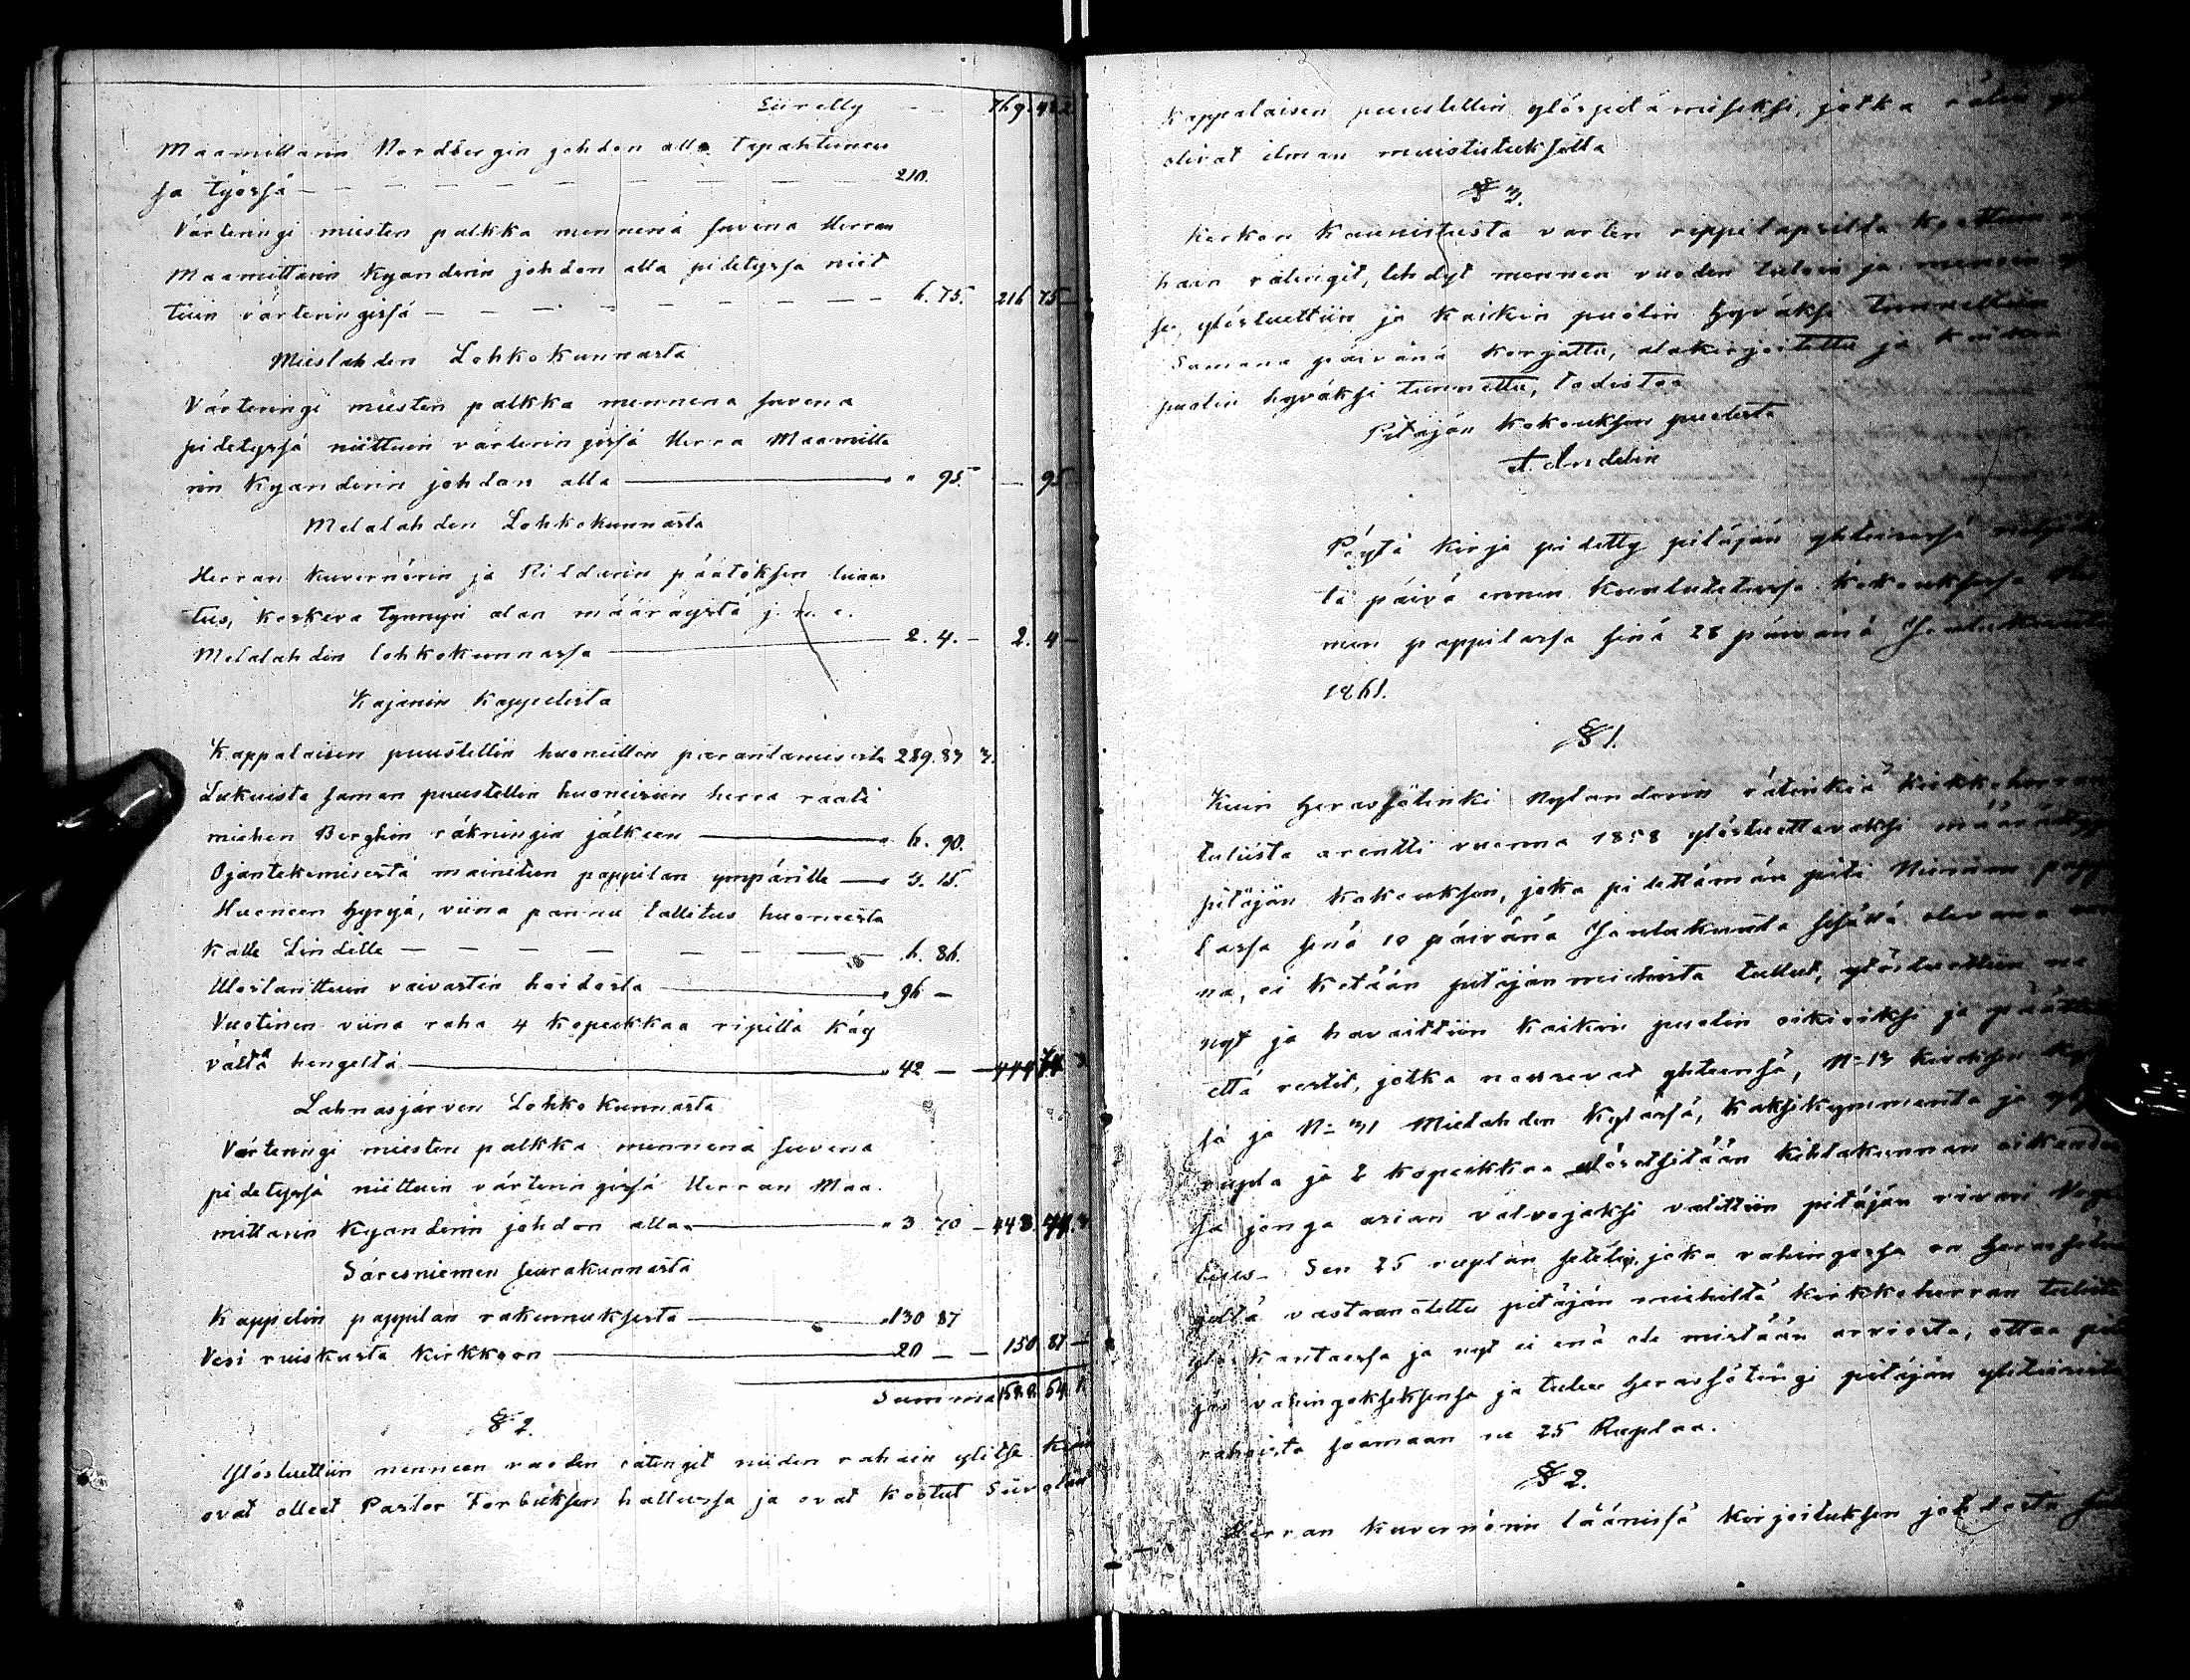 Siirelly - - 769. 42 2
Maamittarin Nordbergin johdon alla tapahtunees
sa työssä 210.
Värteringi miesten palkka mennenä suvena Herran
Maamittarin Kyanderin johdon alla pidetyssä niit
tuin värteringissä 6. 75. 216 75
Mieslahden Lohkokunnasta
Värteringi miesten palkka mennena suvena
pidetyssä niittuin värteringissä Herra Maamitta
rin Kyanderin johdon alla " 95. — 95
Melalahden Lohkokunnasta
Herran Kuvernörin ja Ritdarin päätöksen
tus, koskeva tynnyri alan määräystä j. n. e.
Melalahdin lohkokunnassa 2. 4. - 2. 4 -
Kajanin Kappelista
Kappalaisen puustellin huoneitten parantamisesta 289. 83 3.
Lukuista saman puustellin huoneisiin herra raati
miehen Berghin räkningin jälkeen 6. 90.
Ojantekemisestä mainitun pappilan ympärille 3. 15.
Huoneen hyryä, viina pannu tallitus huoneesta
Kalle Lindille 6. 86.
Uloslanittuin vaivastin hoidosta 96 -
Vuotinen viina raha 4 kopeekkaa ripillä käy
vältä hengeltä 42 - 444 74 3
Lahnasjärven Lohkokunnasta
Värteringi miesten palkka mennenä suvena
pidetyssä niittuin värteringissä Herran Maa
mittarin Kyanderin johdon alla " 3 70 - 448. 44. 3
Säresniemen seurakunnasta
Kappelin pappilan rakennuksesta 130 87
Vesi ruiskusta kirkkoon 20 - - 150. 87 -
Summa 1588. 64. 1
§ 2.
Ylösluettiin menneen vuoden rätingit niiden rahain ylitse
ovat olleet Pastor Forbuksen hallussa ja ovat kootut
Kappalaisen puustellin ylöspitämiseksi, jotka
olivat ilman muistutuksetta
§ 3.
Kirkon kaunistusta varten rippilapsilta koottuin
hain rätingit, tehdyt mennen vuoden tuloin ja menoin
se, ylösluettiin ja kaikin puolin hyväksi tunnettiin
Samana päivänä korjattu, alakirjoitettu ja kaikin
puolin hyväksi tunnettu, todistaa
Pitäjän kokouksen puolesta
A. Andelin
Pöytä kirja pidetty pitäjän yhteisessä
tä päivä ennen kuulutetussa kokouksessa
men pappilassa sinä 28 päivänä Joulukuuta
1861.
§ 1.
Kuin herassötinki Nylanderin rätinkiä kirkkoherran
tuluista arentti vuonna 1858 ylösluettavaksi määrätyssä
pitäjän kokouksen, joka pidettämän piti Niemen pappi
lassa sinä 10 päivänä Joulukuuta sisällä olevana
na, ei ketään pitäjänmiehistä tullut, ylösluettiin ne
nyt ja havaittiin kaikin puolin oikioiksi ja päätettiin
että restit, jotka nousevat yhteensä, N=13
sä ja N=31 Mielahden kylässä, kaksikymmentä ja
rupla ja 2 kopeekkaa ulosetsitään kihlakunnan oikeuden
sa jonga asian valvojaksi valittiin pitäjän
Sen 25 ruplan setelin, joka vahingossa on
geltä vastaanotettu pitäjän miehiltä kirkkoherran tuloita
ylös kantaessa ja nyt ei enä ole mistään arviosta, ottaa pitä
jäs vahingoksensa ja tulee herassötingi pitäjän yhteisistä
rahoista saamaan ne 25 Ruplaa.
§ 2.
Herran Kuvernörin läänissä kirjoituksen johdosta